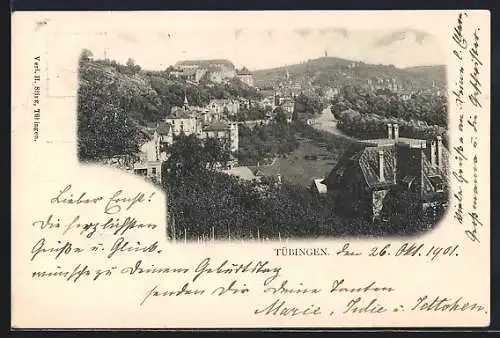 Verl. H. Sting, Tübingen.
Viele Grüße an Deine l. Eltern,
Großmama u. die Geschwister.
TÜBINGEN. den 26. Okt. 1901.
Lieber Ernst!
Die herzlichsten
Grüße und Glück-
wünsche zu Deinem Geburtstag
senden Dir Deine Tanten
Marie, Indie u.